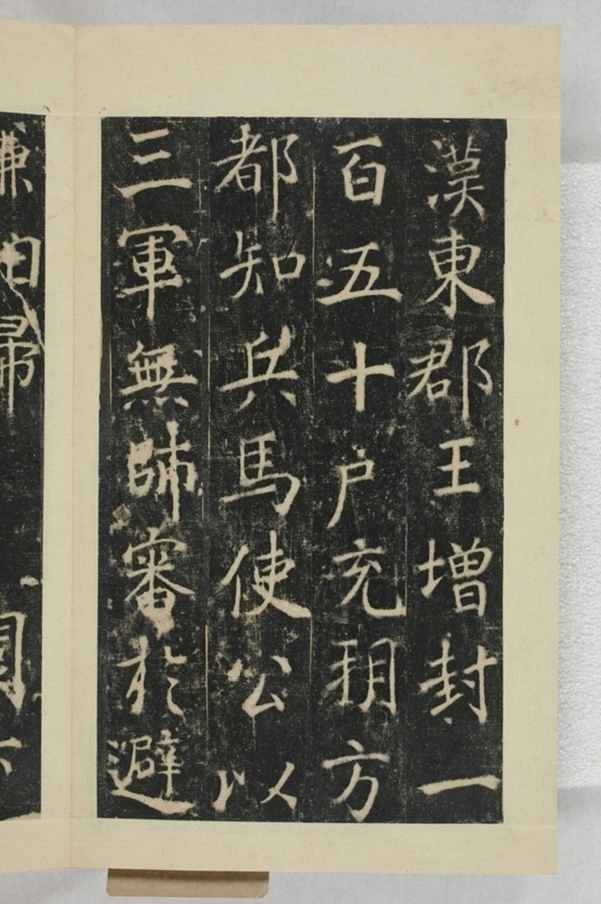 漢東郡王增封一
百五十戶充朔方
都知兵馬使公以
三軍無帥審於避